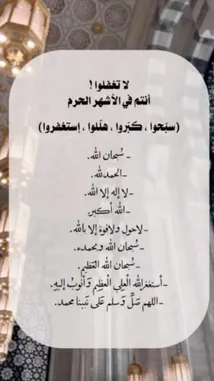 لا تغفلوا !
أنتم في الأشهر الحرم
(سبّحوا ، كبّروا ، هلّلوا ، إستغفروا)
ـ سُبحان الله.
ـ الحمدلله.
ـ لا إله إلا الله.
ـ الله أكبر.
ـ لاحول ولاقوة إلا بالله.
ـ سُبحان الله وبحمده.
ـ سُبحان الله العَظيم.
ـ أستغفرالله العَلي العظيم وَأتوبُ إليهِ.
ـ اللهم صَلِّ وَسلم عَلى نَبينا محمد.